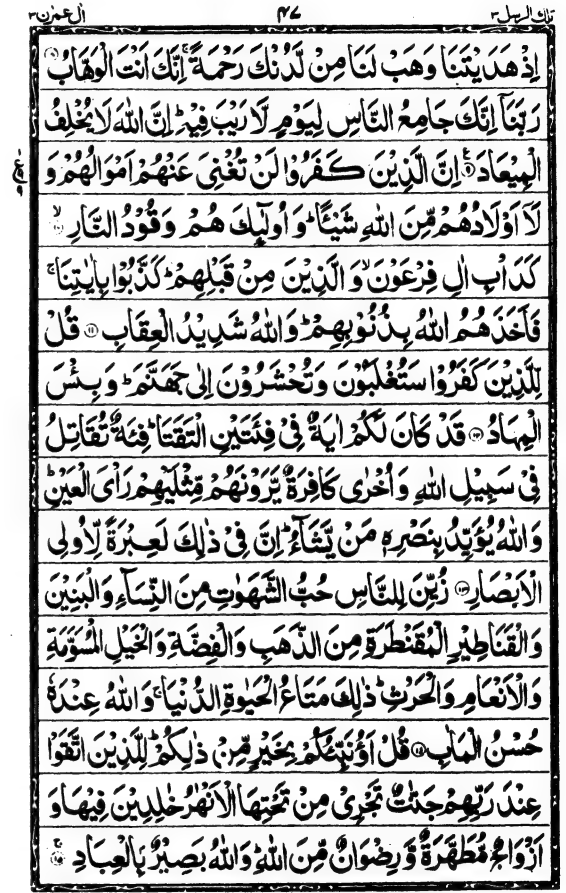 تلك الرسل ٣ ٤٧ ال عمرٰن ٣
اِذْ هَدَيْتَنَا وَهَبْ لَنَا مِنْ لَّدُنْكَ رَحْمَةً ۚ اِنَّكَ اَنْتَ الْوَهَّابُ ۝٨
رَبَّنَاۤ اِنَّكَ جَامِعُ النَّاسِ لِيَوْمٍ لَّا رَيْبَ فِيْهِ ؕ اِنَّ اللّٰهَ لَا يُخْلِفُ
الْمِيْعَادَ ۝٩ اِنَّ الَّذِيْنَ كَفَرُوْا لَنْ تُغْنِيَ عَنْهُمْ اَمْوَالُهُمْ وَ
لَاۤ اَوْلَادُهُمْ مِّنَ اللّٰهِ شَيْـًٔا ؕ وَ اُولٰٓئِكَ هُمْ وَقُوْدُ النَّارِ ۝١٠ۙ
كَدَاْبِ اٰلِ فِرْعَوْنَ ۙ وَ الَّذِيْنَ مِنْ قَبْلِهِمْ ؕ كَذَّبُوْا بِاٰيٰتِنَا ۚ
فَاَخَذَهُمُ اللّٰهُ بِذُنُوْبِهِمْ ؕ وَاللّٰهُ شَدِيْدُ الْعِقَابِ ۝١١ قُلْ
لِّلَّذِيْنَ كَفَرُوْا سَتُغْلَبُوْنَ وَتُحْشَرُوْنَ اِلٰى جَهَنَّمَ ؕ وَبِئْسَ
الْمِهَادُ ۝١٢ قَدْ كَانَ لَكُمْ اٰيَةٌ فِيْ فِئَتَيْنِ الْتَقَتَا ؕ فِئَةٌ تُقَاتِلُ
فِيْ سَبِيْلِ اللّٰهِ وَ اُخْرٰى كَافِرَةٌ يَّرَوْنَهُمْ مِّثْلَيْهِمْ رَاْيَ الْعَيْنِ ؕ
وَاللّٰهُ يُؤَيِّدُ بِنَصْرِهٖ مَنْ يَّشَآءُ ؕ اِنَّ فِيْ ذٰلِكَ لَعِبْرَةً لِّاُولِي
الْاَبْصَارِ ۝١٣ زُيِّنَ لِلنَّاسِ حُبُّ الشَّهَوٰتِ مِنَ النِّسَآءِ وَالْبَنِيْنَ
وَالْقَنَاطِيْرِ الْمُقَنْطَرَةِ مِنَ الذَّهَبِ وَالْفِضَّةِ وَالْخَيْلِ الْمُسَوَّمَةِ
وَالْاَنْعَامِ وَالْحَرْثِ ؕ ذٰلِكَ مَتَاعُ الْحَيٰوةِ الدُّنْيَا ۚ وَاللّٰهُ عِنْدَهٗ
حُسْنُ الْمَاٰبِ ۝١٤ قُلْ اَؤُنَبِّئُكُمْ بِخَيْرٍ مِّنْ ذٰلِكُمْ ؕ لِلَّذِيْنَ اتَّقَوْا
عِنْدَ رَبِّهِمْ جَنّٰتٌ تَجْرِيْ مِنْ تَحْتِهَا الْاَنْهٰرُ خٰلِدِيْنَ فِيْهَا وَ
اَزْوَاجٌ مُّطَهَّرَةٌ وَّرِضْوَانٌ مِّنَ اللّٰهِ ؕ وَاللّٰهُ بَصِيْرٌۢ بِالْعِبَادِ ۝١٥ۚ